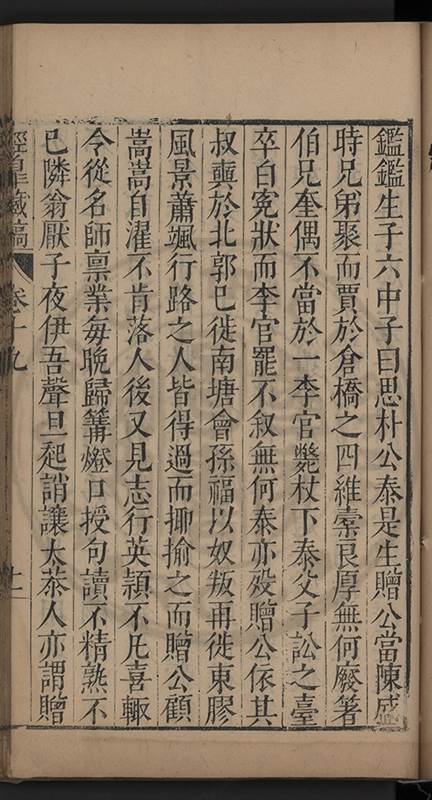 鑑鑑生子六中子曰思朴公泰是生贈公當陳盛
時兄弟聚而賈於倉橋之四維橐艮厚無何廢箸
伯兄奎偶不當於一李官斃杖下泰父子訟之臺
卒白冤狀而李官罷不叙無何泰亦殁贈公依其
叔輿於北郭已徙南塘會孫福以奴叛再徙東膠
風景蕭颯行路之人皆得過而揶揄之而贈公顧
嵩嵩自濯不肯落人後又見志行英穎不凡喜輙
令從名師禀業每晚歸篝燈口授句讀不精熟不
已隣翁厭子夜伊吾聲旦起誚讓太恭人亦謂贈
經皐藏稿
卷十九
上